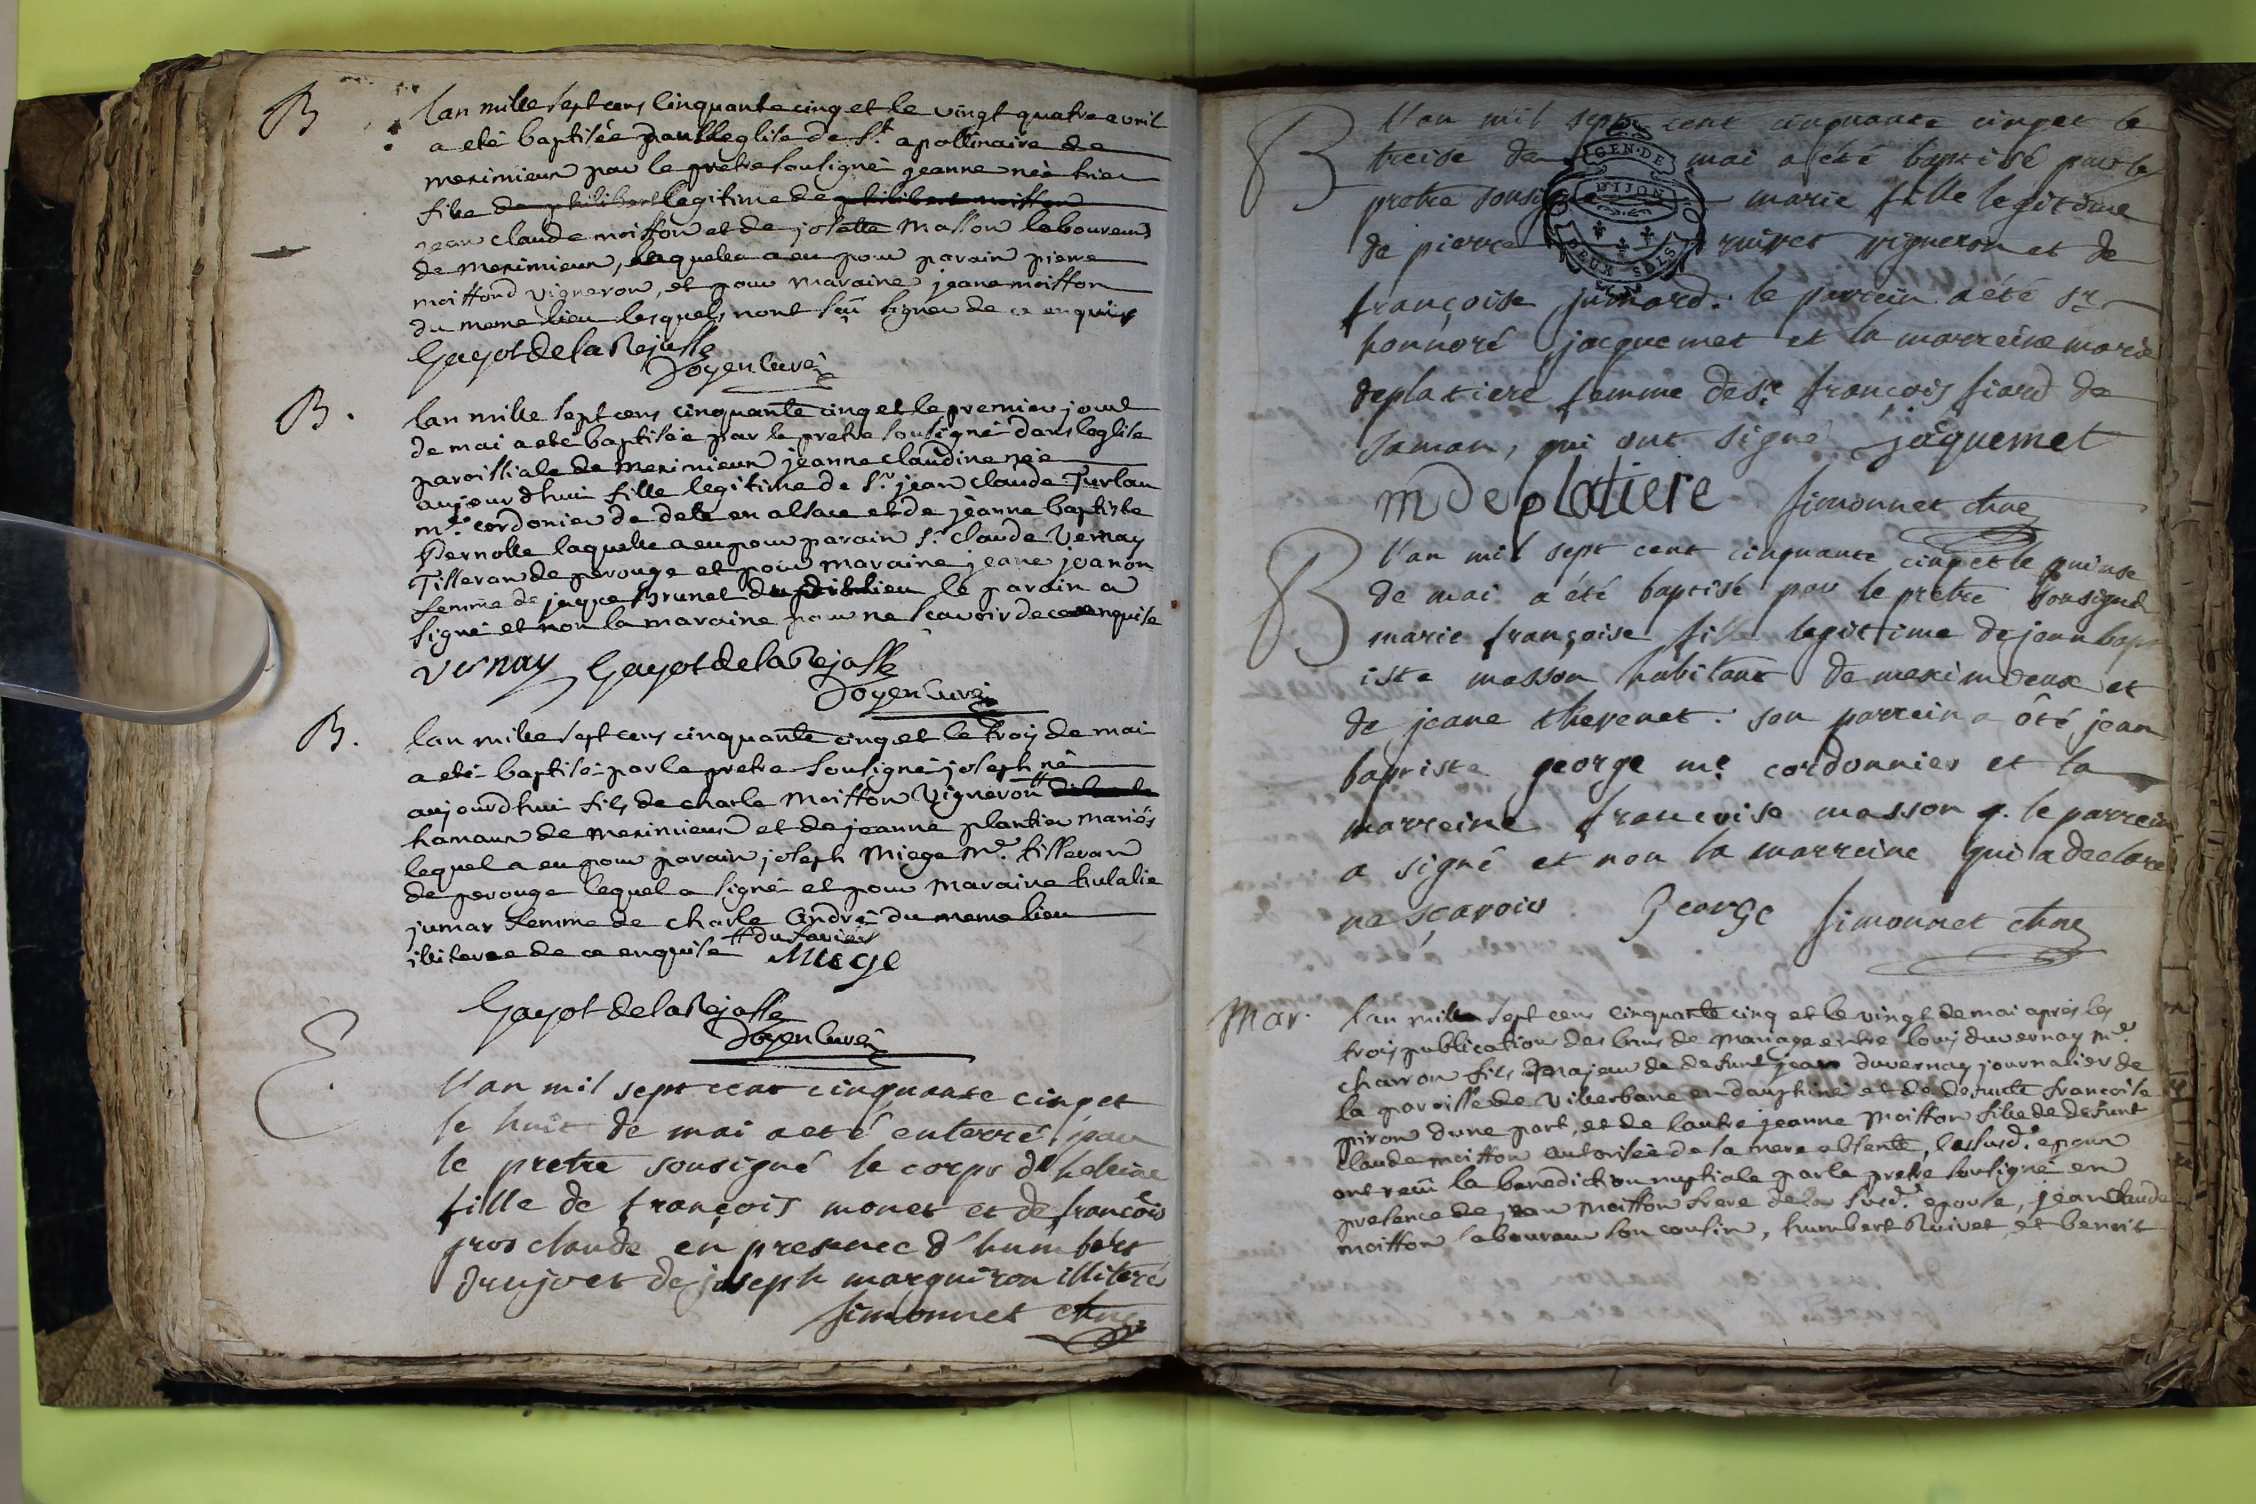 B
lan mille sept cens cinquante cinq et le vingt quatre avril
a eté baptisée dans leglise de St. apollinaire de
meximieux par le pretre sousigné jeanne née hier
fille legitime de
jean claude moiffon et de josette masson laboureurs
de meximieux, laquelle a eu pour parain pierre
moiffond vigneron, et pour maraine jeane moiffon
du meme lieu lesquels nont sçû signer de ce enquis
Gayot de la Rejasse
Doyen Curé
B.
lan mille sept cens cinquante cinq et le premier jour
de mai a eté baptisée par le pretre sousigné dans leglise
paroissiale de meximieux jeanne claudine née
aujourdhui fille legitime de Sr. jean claude Turlau
me. cordonier de dele en alsace et de jeanne baptiste
Pernolle laquelle a eu pour parain Sr. claude Vernay
Tisseran de perouge et pour maraine jeane joanon
femme de jayce Brunet du dit lieu le parain a
signé et non la maraine pour ne scavoir de ce enquise
Vernay Gayot de la Rejasse
Doyen Curé
B.
lan mille sept cens cinquante cinq et le troi de mai
a eté baptisé par le pretre sousigné joseph né
aujourdhui fils de charle moiffon vigneron
hamaux de meximieux et de jeanne plantier mariés
lequel a eu pour parain joseph Miege Me. tisseran
de perouge lequel a signé et pour maraine hulalie
jumar femme de charle André du meme lieu
illiteree de ce enquise
Miege
Gayot de la Rejasse
Doyen Curé
E.
L'an mil sept cent cinquante cinq et
le huit de mai a eté enterré par
le pretre sousigné le corps d'heleine
fille de françois monet et de françois
gros claude en presence d'humbert
drujon et de joseph marguiron illiteré
Simonnet
B
L'an mil sept cent cinquante cinq et le
treise de mai a été baptisé par le
GEN. DE
DIJON
DEUX SOLS
pretre sousigné marie fille legitime
de pierre ruivet vigneron et de
françoise jumard. le parrein a été sr
honnoré jacquemet et la marreine marie
deplatiere femme de Sr. françois fiard de
Saman, qui ont signé jaquemet
m De platiere Simonnet
B
L'an mil sept cent cinquante cinq et le quinse
de mai a été baptisé par le pretre sousigné
marie françoise fille legittime de jean bapt
iste masson habitant de meximieux et
de jeane thevenet. son parrein a été jean
baptiste george me. cordonnier et la
marreine francoise masson. le parrein
a signé et non la marreine qui a declaré
ne sçavoir. George Simonnet
Mar.
lan mille sept cens cinquante cinq et le vingt de mai après les
trois publication des bans de mariage entre louis duvernay me.
charron fils majeur de defunt jean duvernay journalier de
la paroisse de villerbane en dauphiné et de defunte francoise
piron dune part, et de lautre jeanne moiffon fille de defunt
claude moiffon autorisée de sa mere absente, les susd. epoux
ont reçu la benediction nuptiale par le pretre sousigné en
presence de jean moiffon frere de la susd. epouse, jean claude
moiffon laboureur son cousin, humbert Ruivet, et benoit